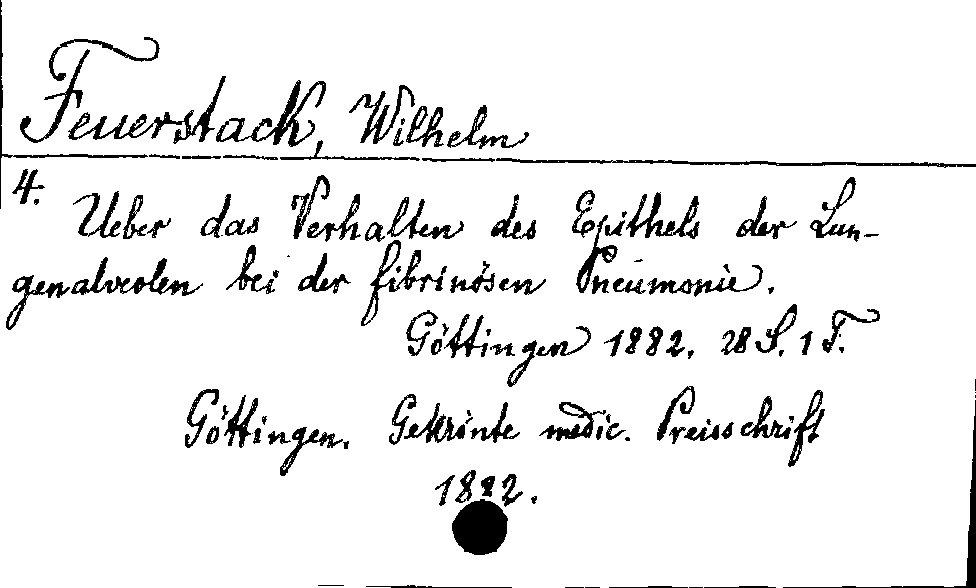 Feuerstack, Wilhelm
4.
Ueber das Verhalten des Epithels der Lun-
genalveolen bei der fibrinösen Pneumonie.
Göttingen 1882. 28 S. 1 T.
Göttingen. Gekrönte medic. Preisschrift
1882.